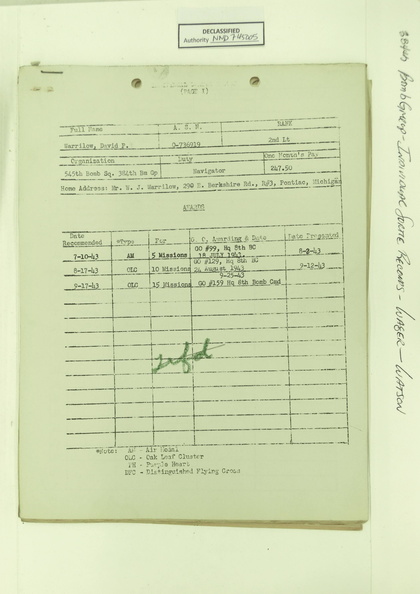 DECLASSIFIED
Authority NND 745005
384th Bomb Group - Individual Sortie Records - WAGER - WATSON
(PAGE 1)
Full Name A. S. N. RANK
Warrilow, David P. O-736019 2nd Lt
Organization Duty One Month's Pay
545th Bomb Sq. 384th Bm Gp Navigator 247.50
Home Address: Mr. W. J. Warrilow, 290 E. Berkshire Rd., R#3, Pontiac, Michigan
AWARDS
Date Recommended *Type For O. C. Awarding & Date Date Presented
7-10-43 AM 5 Missions GO #99, Hq 8th BC 18 JULY 1943. 8-2-43
8-17-43 OLC 10 Missions GO #129, Hq 8th BC 24 August 1943 9-12-43
9-17-43 OLC 15 Missions 9-25-43 GO #159 Hq 8th Bomb Cmd
*Note: AM - Air Medal
OLC - Oak Leaf Cluster
PH - Purple Heart
DFC - Distinguished Flying Cross